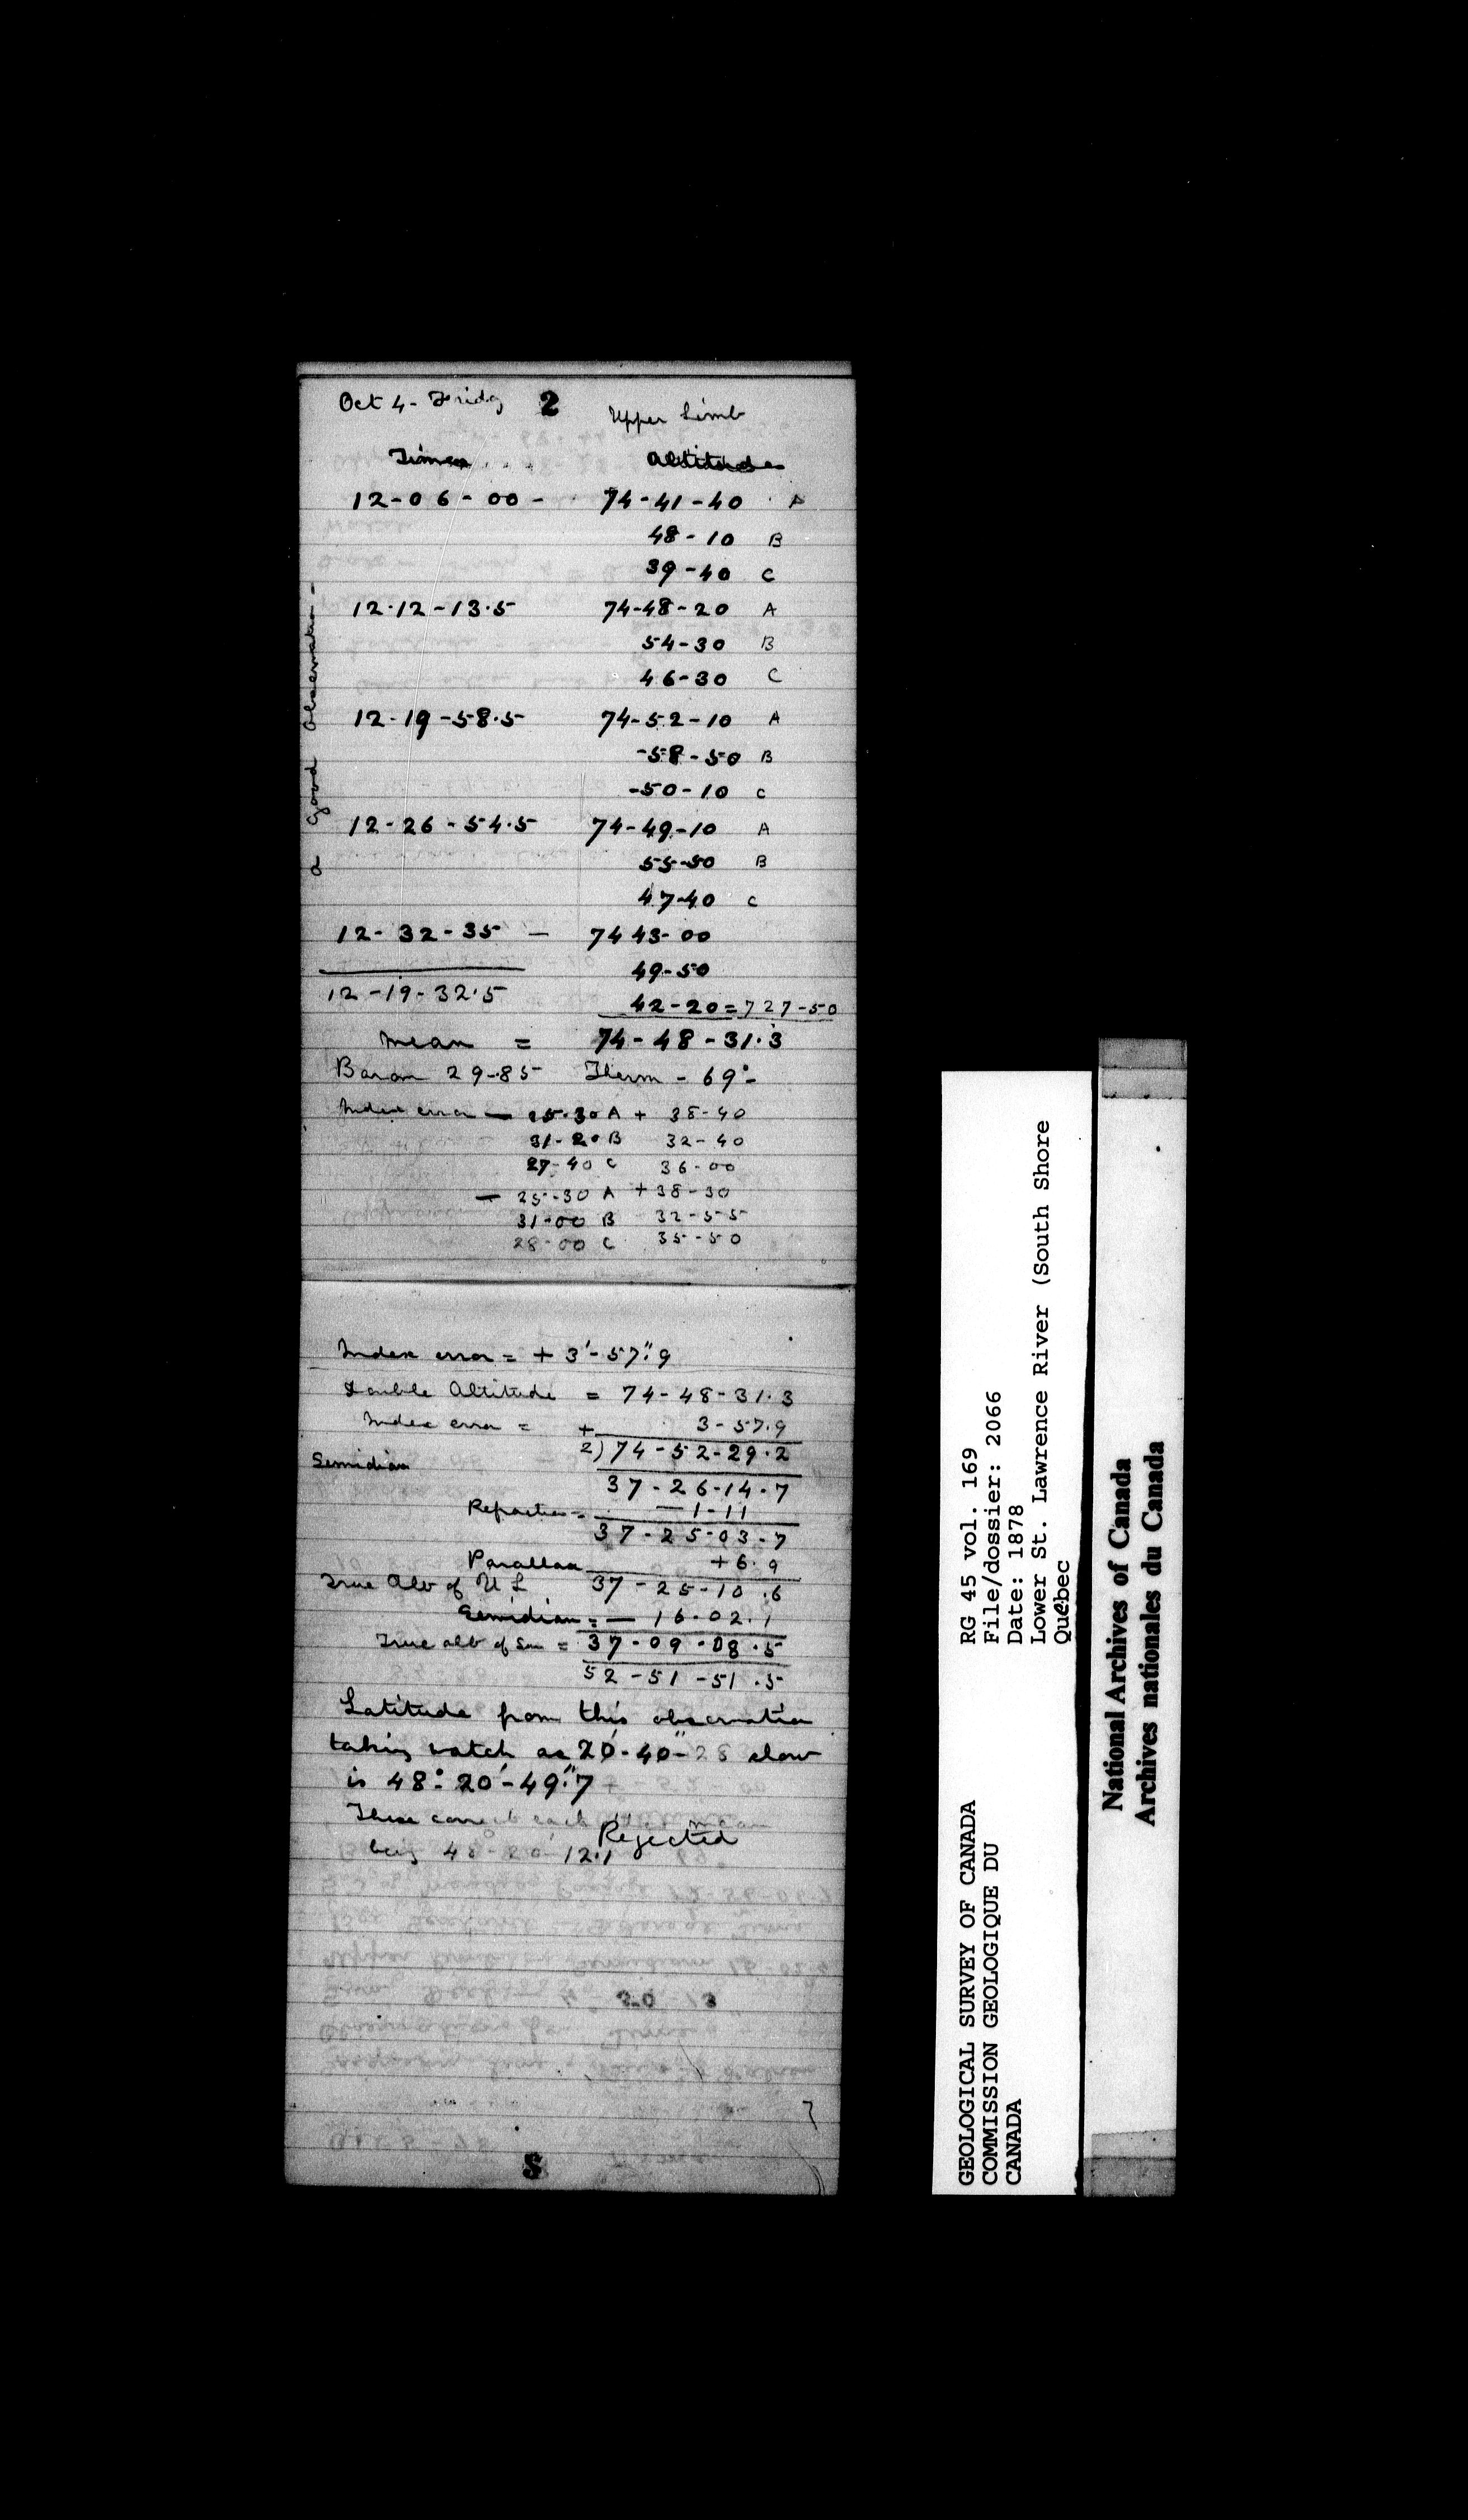 Oct 4 - Friday 2 Upper Limb
Times Altitudes
12-06-00 - 74-41-40 A
48-10 B
39-40 C
12-12-13.5 74-48-20 A
54-30 B
46-30 C
12-19-58.5 74-52-10 A
-58-50 B
-50-10 C
12-26-54.5 74-49-10 A
55-50 B
47-40 C
12-32-35 - 74 43-00
49-50
12-19-32.5
42-20=727-50
Mean = 74-48-31.3
Barom 29-85 Therm - 69°-
Index error - 25.30 A + 38-40
31-20 B 32-40
27-40 C 36-00
- 25-30 A + 38-30
31-00 B 32-55
28-00 C 35-50
a good observation -
Index error = + 3'-57".9
Double Altitude = 74-48-31.3
Index error = + 3-57.9
2) 74-52-29.2
Semidiam
37-26-14.7
Refraction = - 1-11
37-25-03.7
Parallax +6.9
True Alt of U L 37-25-10.6
Semidiam = - 16.02.1
True alt of Sun = 37-09-08.5
52-51-51.5
Latitude from this observation
taking watch as 20'-40"-28 slow
is 48°-20'-49".7
These correct each other mean
being 48°-20'-12.1
Rejected
30-13
S
RG 45 vol. 169
File/dossier: 2066
Date: 1878
Lower St. Lawrence River (South Shore
Québec
GEOLOGICAL SURVEY OF CANADA
COMMISSION GEOLOGIQUE DU
CANADA
National Archives of Canada
Archives nationales du Canada